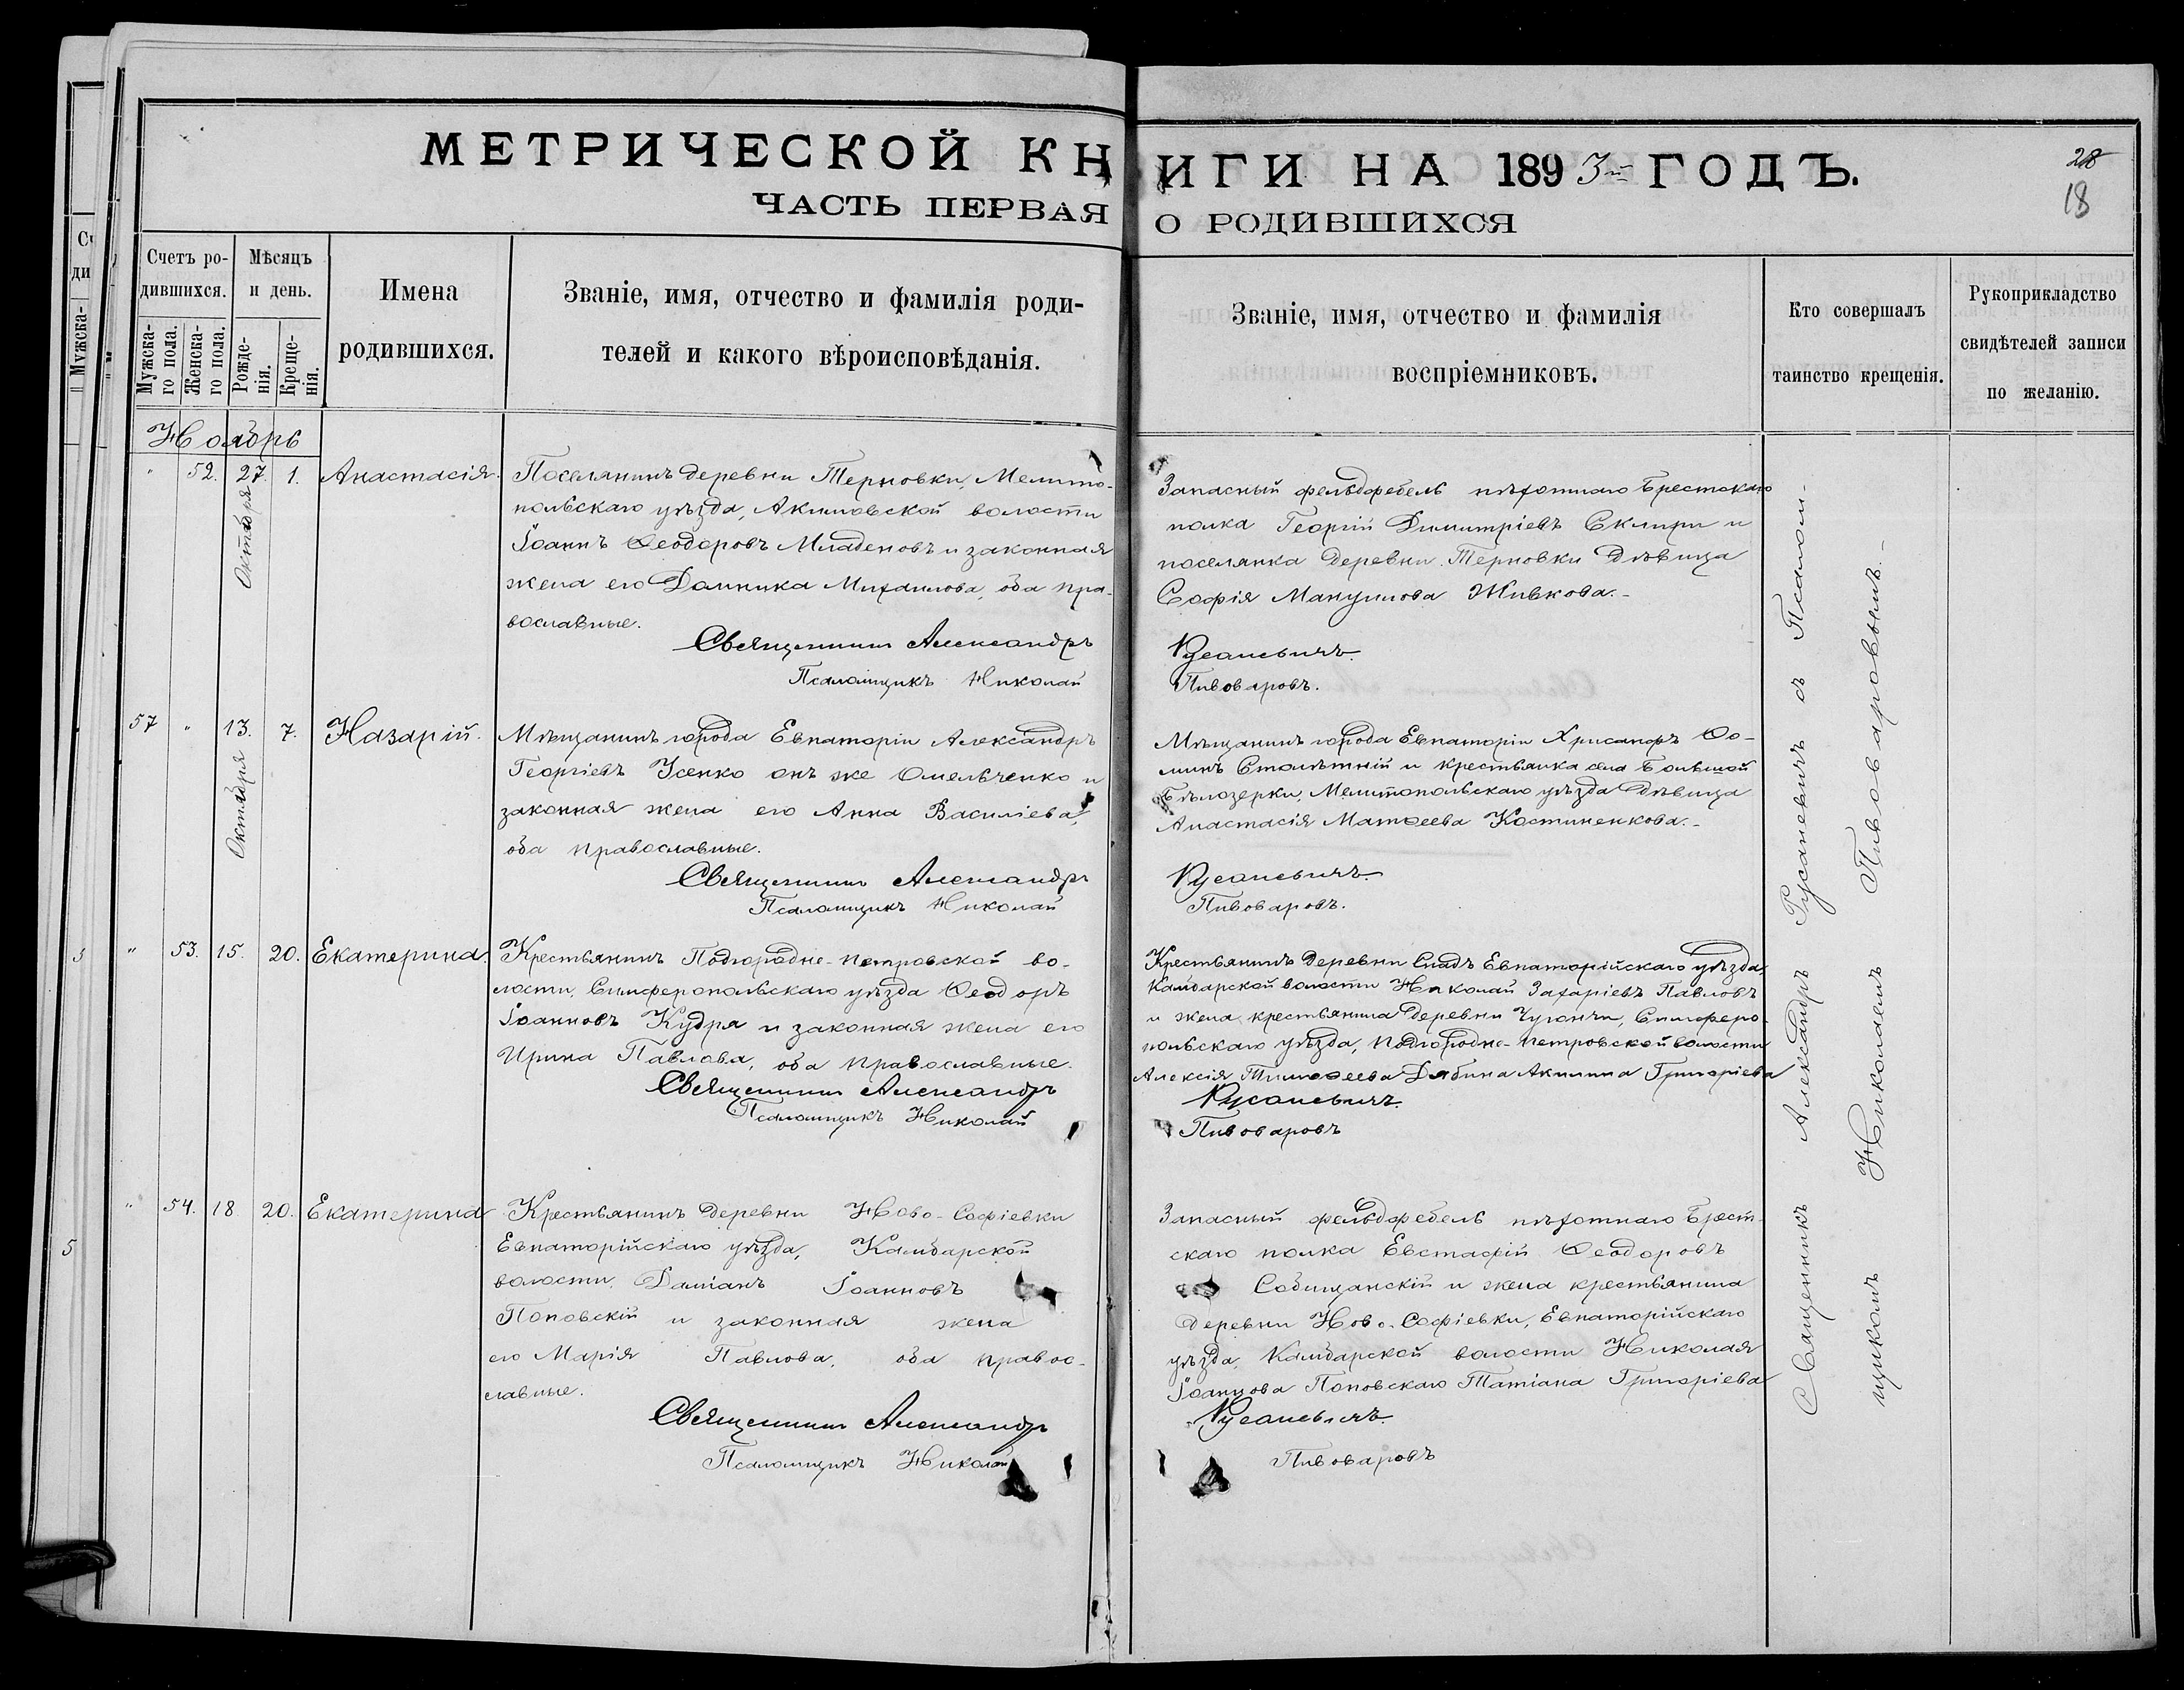 МЕТРИЧЕСКОЙ КНИГИ НА 1893й ГОДЪ.
ЧАСТЬ ПЕРВАЯ О РОДИВШИХСЯ
28
18
Счетъ ро-
дившихся.
Мужска-
го пола.
Женска-
го пола.
Мѣсяцъ
и день.
Рожде-
нія.
Креще-
нія.
Имена
родившихся.
Званіе, имя, отчество и фамилія роди-
телей и какого вѣроисповѣданія.
Званіе, имя, отчество и фамилія
воспріемниковъ.
Кто совершалъ
таинство крещенія.
Рукоприкладство
свидѣтелей записи
по желанію.
Ноябрь
" 52. 27. 1. Анастасія.
Октября
Поселянинъ деревни Терновки, Мелито-
польскаго уѣзда, Акимовской волости
Іоаннъ Ѳеодоровъ Младеновъ и законная
жена его Домника Михаилова, оба пра-
вославные.
Священникъ Александръ
Псаломщикъ Николай
Запасный фельдфебель пѣхотнаго Брестскаго
полка Георгій Димитріевъ Скляри и
поселянка деревни Терновки дѣвица
Софія Манулова Живкова.-
Русаневичъ.
Пивоваровъ.
57 " 13. 7. Назарій.
Октября
Мѣщанинъ города Евпаторіи Александръ
Георгіевъ Усенко онъ же Омельченко и
законная жена его Анна Василіева,
оба православные.
Священникъ Александръ
Псаломщикъ Николай
Мѣщанинъ города Евпаторіи Хрисанфъ Ѳо-
минъ Столѣтній и крестьянка села Большой
Бѣлозерки, Мелитопольскаго уѣзда дѣвица
Анастасія Матѳеева Костиненкова.-
Русаневичъ.
Пивоваровъ.
" 53. 15. 20. Екатерина.
Крестьянинъ Подгородне-Петровской во-
лости, Симферопольскаго уѣзда Ѳеодоръ
Іоанновъ Кудря и законная жена его
Ирина Павлова, оба православные.
Священникъ Александръ
Псаломщикъ Николай
Крестьянинъ деревни Евпаторійскаго уѣзда,
Камбарской волости Николай Захаріевъ Павловъ
и жена крестьянина деревни Чугончи, Симферо-
польскаго уѣзда, Подгородне-Петровской волости
Алексія Тимоѳеева Дябина Акилина Григоріева
Русаневичъ.
Пивоваровъ
" 54. 18. 20. Екатерина
Крестьянинъ деревни Ново-Софіевки
Евпаторійскаго уѣзда, Камбарской
волости, Даміанъ Іоанновъ
Поповскій и законная жена
его Марія Павлова, оба правос-
лавные.
Священникъ Александръ
Псаломщикъ Николай
Запасный фельдфебель пѣхотнаго Брест-
скаго полка Евстафій Ѳеодоровъ
Собищанскій и жена крестьянина
деревни Ново-Софіевки, Евпаторійскаго
уѣзда, Камбарской волости Николая
Іоаннова Поповскаго Татіана Григоріева
Русаневичъ.
Пивоваровъ
Священникъ Александръ Русаневичъ съ Псалом-
щикомъ Николаемъ Пивоваровымъ.-
Мужска-
5
5